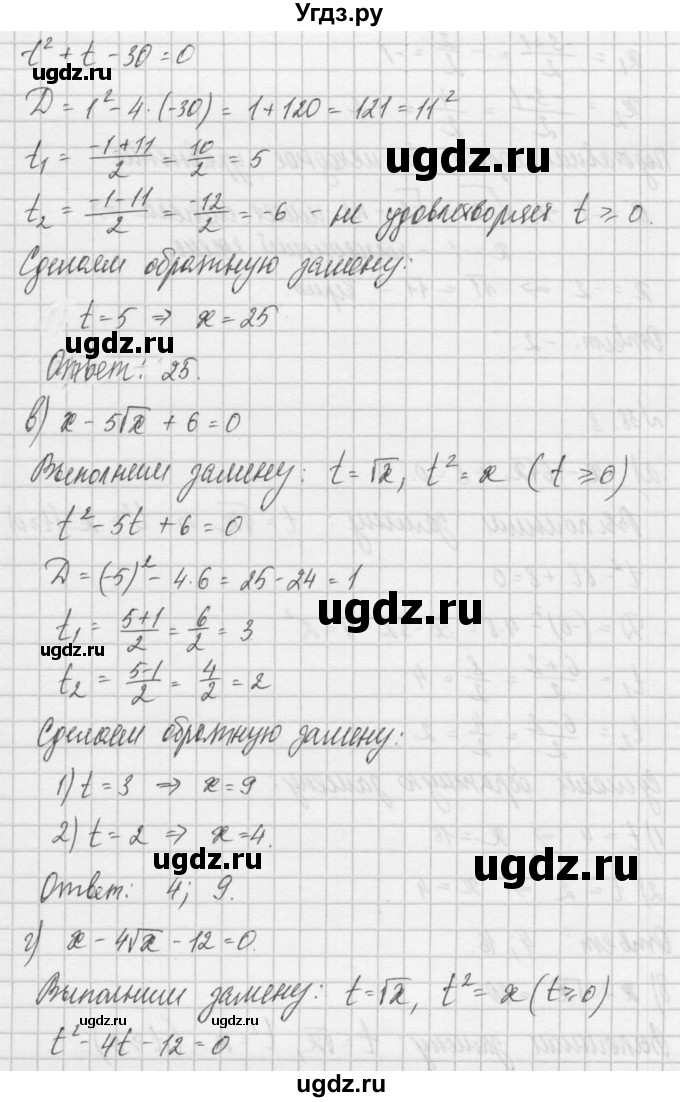 Угдз.ру
t² + t - 30 = 0
D = 1² - 4·(-30) = 1 + 120 = 121 = 11²
t₁ = (-1+11)/2 = 10/2 = 5
t₂ = (-1-11)/2 = -12/2 = -6 не удовлетворяет t ≥ 0.
Сделаем обратную замену:
t = 5 ⇒ x = 25
ugdz.ru ugdz.ru
Ответ: 25.
в) x - 5√x + 6 = 0
Выполним замену: t = √x, t² = x (t ≥ 0)
ugdz.ru
t² - 5t + 6 = 0
D = (-5)² - 4·6 = 25 - 24 = 1
ugdz.ru
t₁ = (5+1)/2 = 6/2 = 3
ugdz.ru
t₂ = (5-1)/2 = 4/2 = 2
Сделаем обратную замену:
1) t = 3 ⇒ x = 9
2) t = 2 ⇒ x = 4.
ugdz.ru ugdz.ru
Ответ: 4; 9.
г) x - 4√x - 12 = 0.
Выполним замену: t = √x, t² = x (t ≥ 0)
ugdz.ru ugdz.ru
t² - 4t - 12 = 0
ugdz.ru